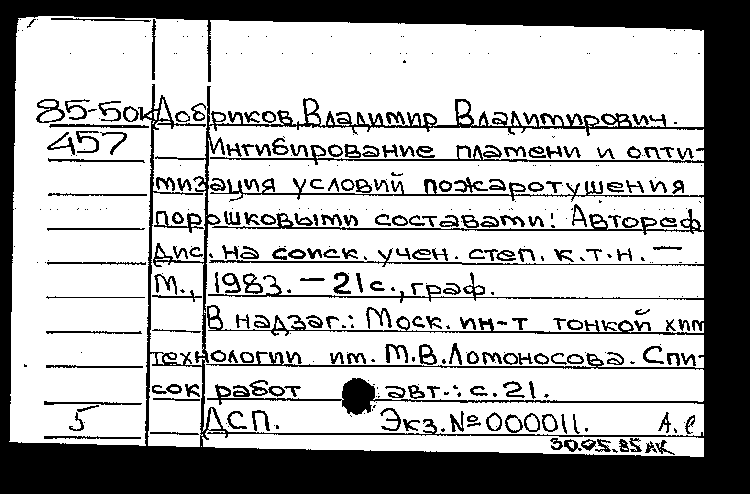 85-50к Добриков, Владимир Владимирович.
457 Ингибирование пламени и опти-
мизация условий пожаротушения
порошковыми составами: Автореф.
Дис. на соиск. учен. степ. к.т.н. —
М., 1983. — 21 с., граф.
В надзаг.: Моск. ин-т тонкой хим
технологии им. М.В.Ломоносова. Спи-
сок работ авт.: с.21.
5 ДСП. Экз.№000011. А.С.
30.05.85 АК